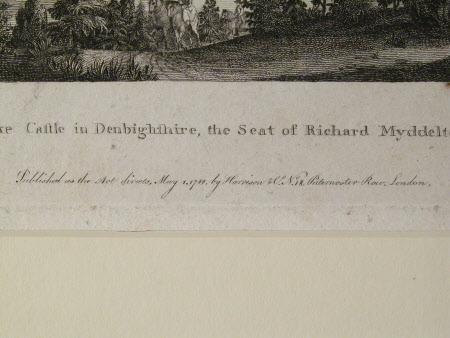 ke Castle in Denbighshire, the Seat of Richard Myddelt
Published as the Act directs, May 1, 1788, by Harrison & Co. No. 18, Paternoster Row, London.